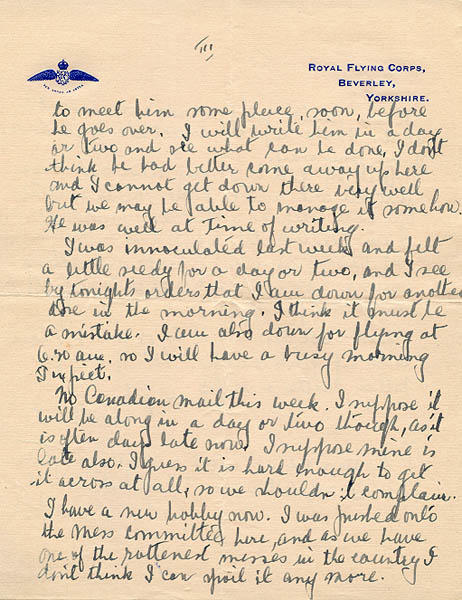 III
ROYAL FLYING CORPS,
BEVERLEY,
YORKSHIRE.
to meet him some place, soon, before
he goes over. I will write him in a day
or two and see what can be done. I don't
think he had better come away up here
and I cannot get down there very well
but we may be able to manage it somehow.
He was well at time of writing.
I was innoculated last week and felt
a little seedy for a day or two, and I see
by tonights orders that I am down for another
one in the morning. I think it must be
a mistake. I am also down for flying at
6.30 am. so I will have a busy morning
I expect.
No Canadian mail this week. I suppose it
will be along in a day or two though, as it
is often days late now. I suppose mine is
late also. I guess it is hard enough to get
it across at all, so we shouldn't complain.
I have a new hobby now. I was pushed onto
the Mess Committee here, and as we have
one of the rottenest messes in the country I
don't think I can spoil it any more.